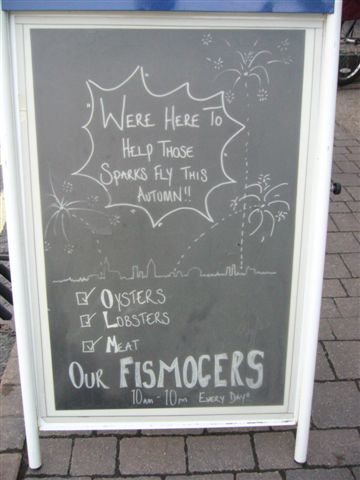 WERE HERE TO
HELP THOSE
SPARKS FLY THIS
AUTUMN!!
OYSTERS
LOBSTERS
MEAT
OUR FISMOGERS
10am - 10pm EVERY DAY*